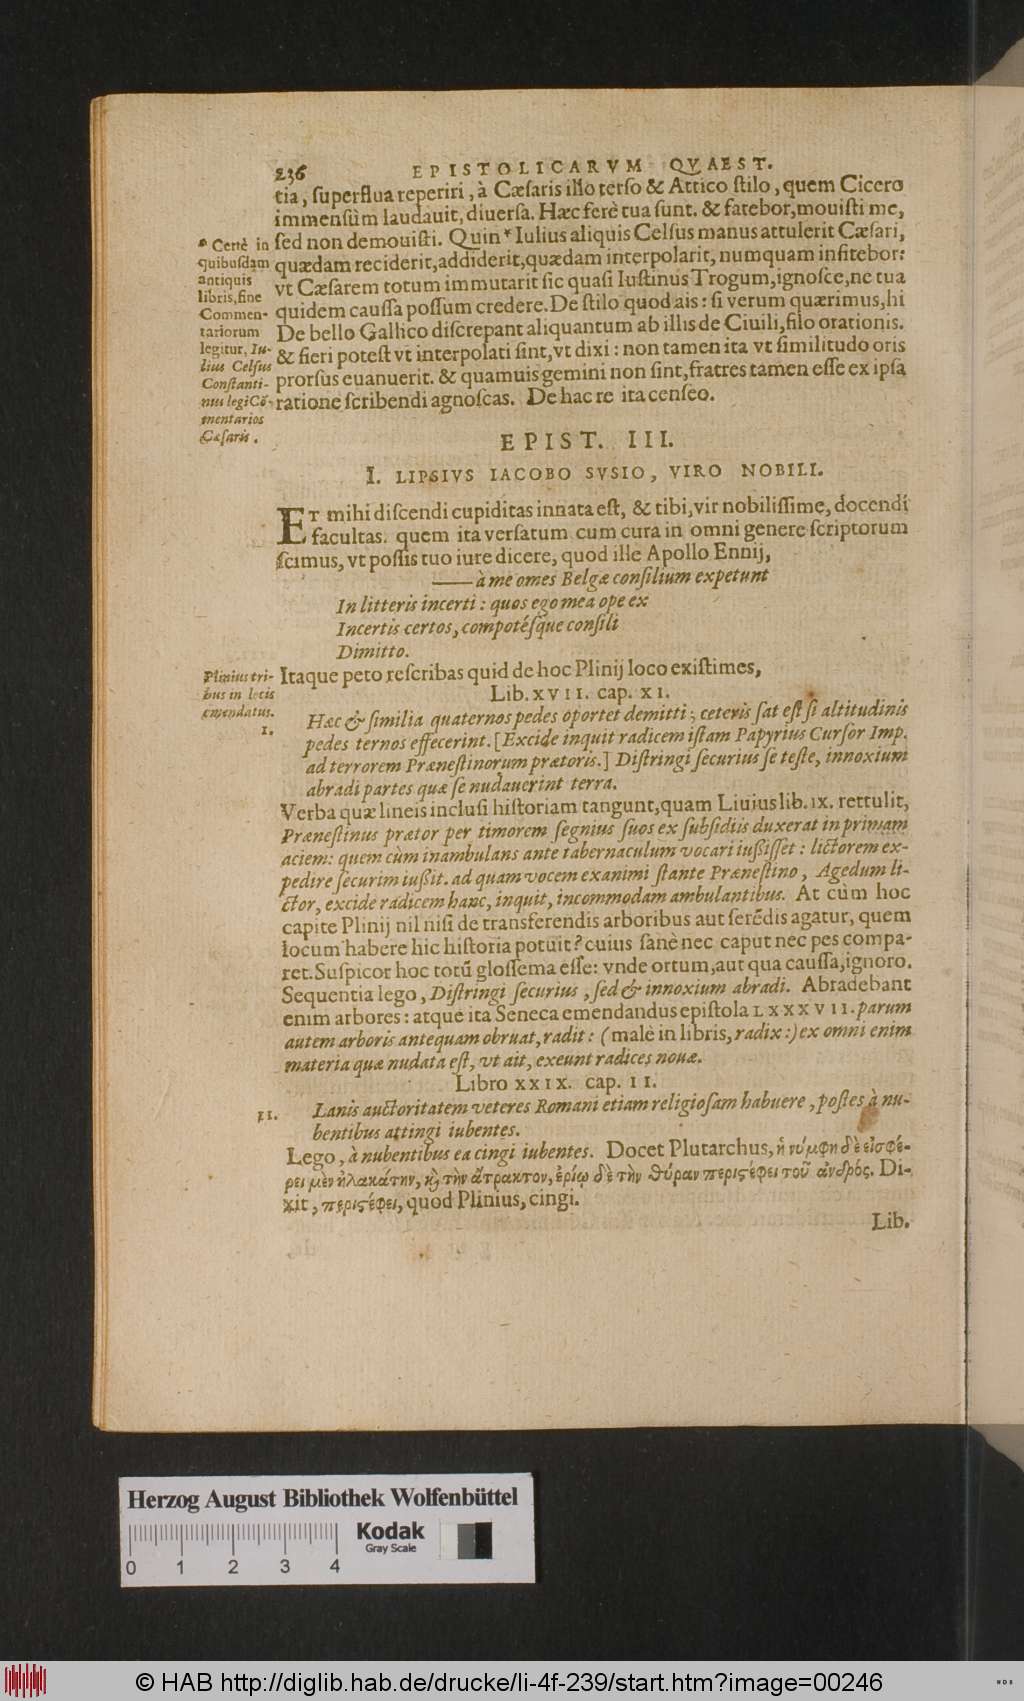 236 EPISTOLICARVM QVAEST.
tia, superflua reperiri, à Cæsaris illo terso & Attico stilo, quem Cicero
immensùm laudauit, diuersa. Hæc ferè tua sunt. & fatebor, mouisti me,
sed non demouisti. Quin * Iulius aliquis Celsus manus attulerit Cæsari,
quædam reciderit, addiderit, quædam interpolarit, numquam infitebor:
vt Cæsarem totum immutarit sic quasi Iustinus Trogum, ignosce, ne tua
quidem caussa possum credere. De stilo quod ais: si verum quærimus, hi
De bello Gallico discrepant aliquantum ab illis de Ciuili, filo orationis.
& fieri potest vt interpolati sint, vt dixi: non tamen ita vt similitudo oris
prorsus euanuerit. & quamuis gemini non sint, fratres tamen esse ex ipsa
ratione scribendi agnoscas. De hac re ita censeo.
* Certè in
quibusdam
antiquis
libris, fine
Commen-
tariorum
legitur, Iu-
lius Celsus
Constanti-
nus legi Cō-
mentarios
Cæsaris.
EPIST. III.
I. LIPSIVS IACOBO SVSIO, VIRO NOBILI.
ET mihi discendi cupiditas innata est, & tibi, vir nobilissime, docendi
facultas. quem ita versatum cum cura in omni genere scriptorum
scimus, vt possis tuo iure dicere, quod ille Apollo Ennij,
—— à me omes Belgæ consilium expetunt
In litteris incerti: quos ego mea ope ex
Incertis certos, compotésque consili
Dimitto.
Itaque peto rescribas quid de hoc Plinij loco existimes,
Plinius tri-
bus in locis
emendatus.
I.
Lib. XVII. cap. XI.
Hæc & similia quaternos pedes oportet demitti; ceteris sat est si altitudinis
pedes ternos effecerint. [Excide inquit radicem istam Papyrius Cursor Imp.
ad terrorem Prænestinorum prætoris.] Distringi securius se teste, innoxium
abradi partes quæ se nudauerint terra.
Verba quæ lineis inclusi historiam tangunt, quam Liuius lib. IX. rettulit,
Prænestinus prætor per timorem segnius suos ex subsidiis duxerat in primam
aciem: quem cùm inambulans ante tabernaculum vocari iußisset: lictorem ex-
pedire securim iußit. ad quam vocem exanimi stante Prænestino, Agedum li-
ctor, excide radicem hanc, inquit, incommodam ambulantibus. At cùm hoc
capite Plinij nil nisi de transferendis arboribus aut serēdis agatur, quem
locum habere hic historia potuit? cuius sanè nec caput nec pes compa-
ret. Suspicor hoc totū glossema esse: vnde ortum, aut qua caussa, ignoro.
Sequentia lego, Distringi securius, sed & innoxium abradi. Abradebant
enim arbores: atque ita Seneca emendandus epistola LXXXVII. parum
autem arboris antequam obruat, radit: (malè in libris, radix:) ex omni enim
materia quæ nudata est, vt ait, exeunt radices nouæ.
Libro XXIX. cap. II.
II.
Lanis auctoritatem veteres Romani etiam religiosam habuere, postes à nu-
bentibus attingi iubentes.
Lego, à nubentibus ea cingi iubentes. Docet Plutarchus, ἡ νύμφη δὲ εἰσφέ-
ρει μὲν ἠλακάτην, καὶ τὴν ἄτρακτον, ἐρίῳ δὲ τὴν θύραν περιστέφει τοῦ ἀνδρός. Di-
xit, περιστέφει, quod Plinius, cingi.
Lib.
Herzog August Bibliothek Wolfenbüttel
0 1 2 3 4
Kodak
Gray Scale
© HAB http://diglib.hab.de/drucke/li-4f-239/start.htm?image=00246